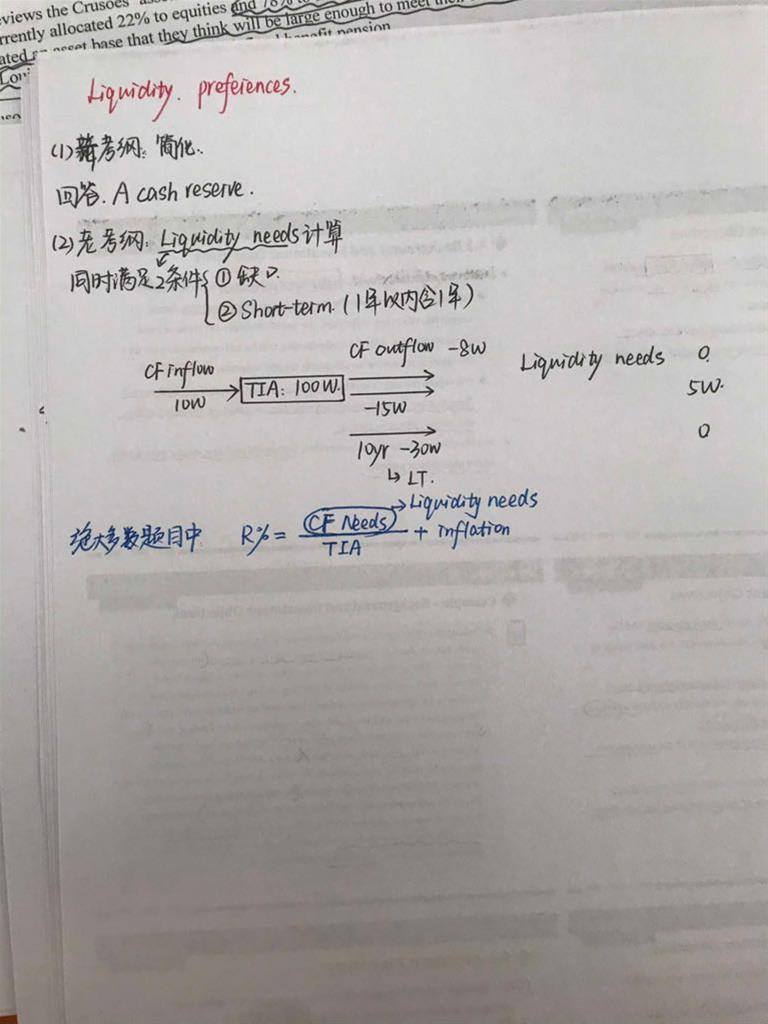 eviews the Crusoes'
rrently allocated 22% to equities and 78%
ated an asset base that they think will be large enough to meet their
benefit pension
Liquidity. preferences.
(1) 新考纲: 简化.
回答. A cash reserve.
(2) 老考纲: Liquidity needs计算
同时满足2条件 ① 缺口.
② Short-term. (1年以内含1年)
CF outflow -8W Liquidity needs 0.
CF inflow
10W TIA: 100W. 5W.
-15W
0
10yr -30W
↳ LT.
→ Liquidity needs
绝大多数题目中 R% = CF Needs / TIA + inflation